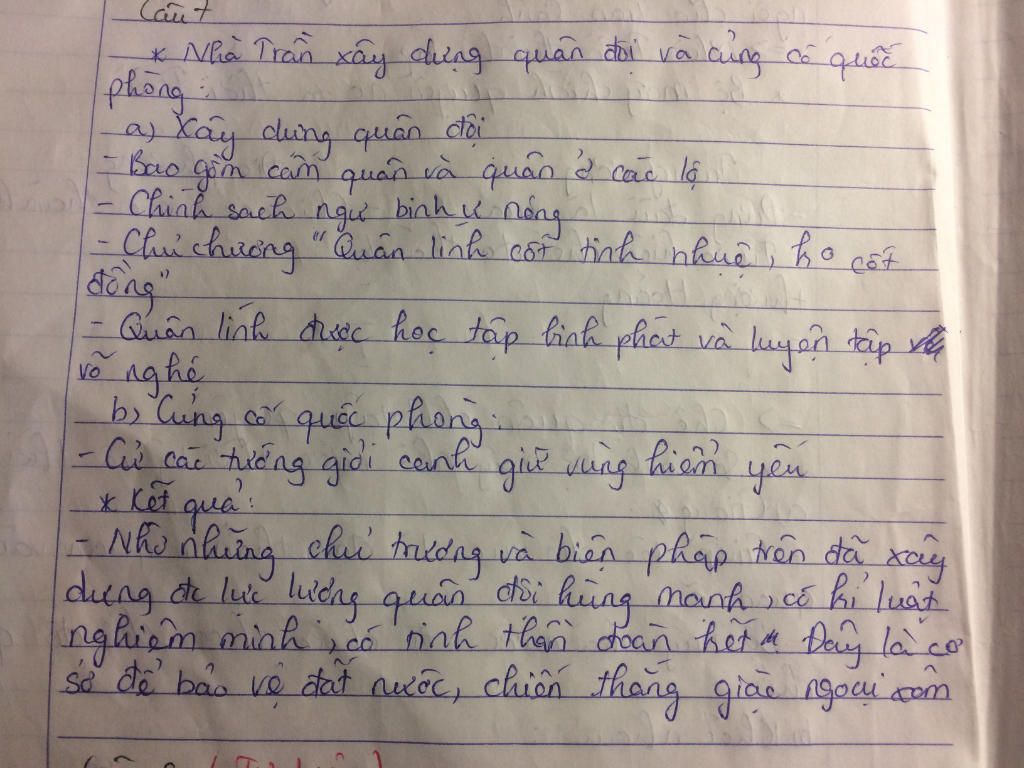 Câu 7
* Nhà Trần xây dựng quân đội và củng cố quốc
phòng :
a) Xây dưng quân đội
- Bao gồm cấm quân và quân ở các lộ
- Chính sách ngụ binh ư nông
- Chủ chương "Quân lính cốt tinh nhuệ, ko cốt
đông"
- Quân lính được học tập binh phát và luyện tập
võ nghệ
b) Củng cố quốc phòng :
- Cử các tướng giỏi canh giữ vùng hiểm yếu
* Kết quả :
- Nhờ những chủ trương và biện pháp trên đã xây
dựng đc lực lượng quân đội hùng mạnh, có kỉ luật
nghiêm minh, có tinh thần đoàn kết. Đây là cơ
sở để bảo vệ đất nước, chiến thắng giặc ngoại xâm